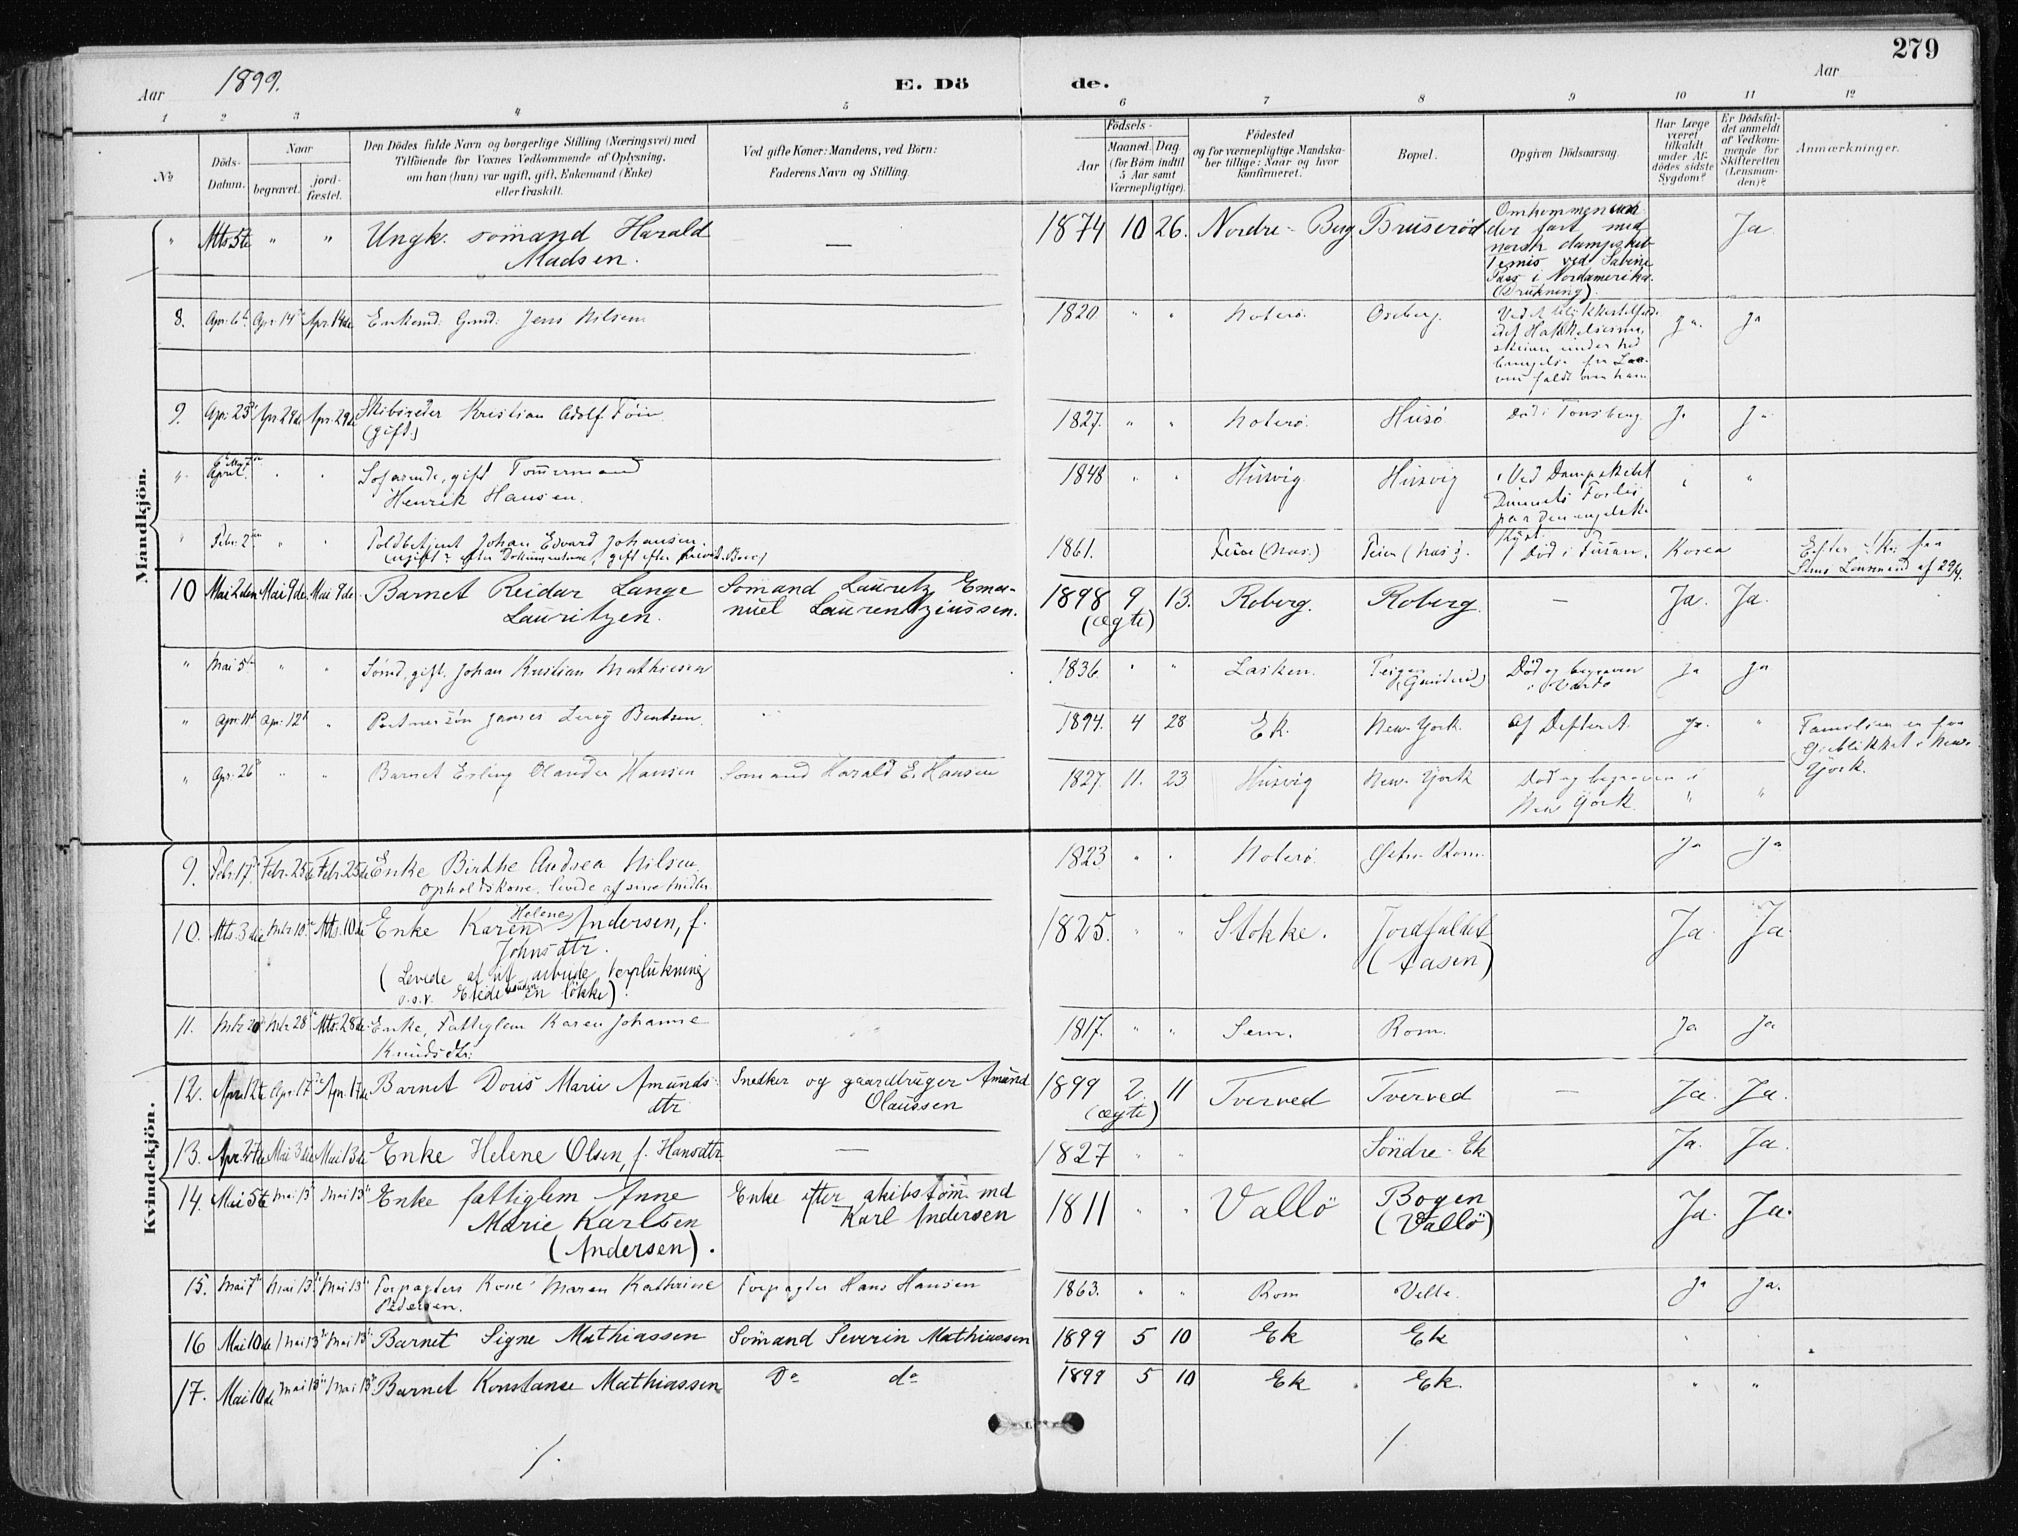 279
Aar 1899.
E. Dö
de.
Aar
1 2 3 4 5 6 7 8 9 10 11 12
No
Döds-Datum.
Naar
begravet.
jord-fæstet.
Den Dödes fulde Navn og borgerlige Stilling (Næringsvei) med
Tilföiende for Voxnes Vedkommende af Oplysning,
om han (hun) var ugift, gift, Enkemand (Enke)
eller fraskilt.
Ved gifte Koner: Mandens, ved Börn:
Faderens Navn og Stilling.
Födsels-
Aar
Maaned. Dag
(for Börn indtil
5 Aar samt
Værnepligtige).
Födested
og for værnepligtige Mandska-
ber tillige: Naar og hvor
konfirmeret.
Bopæl.
Opgiven Dödsaarsag.
Har Læge
været
tilkaldt
under Af-
dödes sidste
Sygdom?
Er Dödsfal-
det anmeldt
af Vedkom-
mende for
Skifteretten
(Lensman-
den)?
Anmærkninger.
Mandkjön.
" Mts. 5te " " Ungk. sömand Harald Madsen. — 1874 10 26. Nordre-Berg Bruserød Omkommen under fart med norsk dampskib ved Sabine Pass i Nordamerika. (Drukning). Ja
8. Apr. 6te Apr. 14de Apr. 14de Enkemd. Gmd. Jens Nilsen 1820 " " Noterö. Oseberg. Ja. Ja
9. Apr. 23 Apr. 29de Apr. 29de Skibsreder Kristian Adolf Föin (gift) 1827. " " Noterö. Husö Död i Tönsberg. Ja Ja
" April " " gift Tömmermand Henrik Hansen. 1848 " " Husvig Husvig Ved Dampskibet Forlis paa den engelske Kyst. "
" Febr. 2 " " Toldbetjent Johan Edvard Johansen. 1861. Teie (Næs.) Teien (Næs). Död i Fusan, Korea
10 Mai 2den Mai 9de Mai 9de Barnet Reidar Lange Lauritzen. Sömand Lauretz Ema-nuel Laurentziussen. 1898 9 13. (ægte) Roberg. Roberg. — Ja. Ja.
" Mai 5te " " Sömd, gift. Johan Kristian Mathiesen 1836. " " Lasken. Död og begraven i Vardö Ja Ja
" Apr. 11te Apr. 12te " James Leroy Bentsen. 1894. 4 28 Ek. New-York. af Difterit. Ja. " Familien er for Öieblikket i New-York.
" Apr. 26 " " Barnet Erling Olander Hansen Sömand Harald E. Hansen 1827. 11. 23 Husvig New-York Död og begraven i New York. " "
Kvindekjön.
9. Febr. 17 Febr. 25de Febr. 25de Enke Birthe Andrea Nilsen opholdskone, levede af sine midler 1823 " " Noterö. Østre Rom. Ja Ja
10. Mts. 3die Mts 10de Mts. 10de Enke Karen Helene Andersen, f. Johnsdtr. (Levede af 1825. " " Stokke. Jordfaldet (Aasen) Ja. Ja.
11. Mts 20 Mts 28 Mts. 28de Enke, Fattiglem Karen Johanne Knudsdtr: 1817. " " Sem. Rom. Ja Ja
12. Apr. 12te Apr. 17de Apr. 17de Barnet Doris Marie Amunds-dtr Snedker og gaardbruger Amund Olaussen 1899 2. 11 (ægte) Tverved Tverved — Ja. Ja.
13. Apr. 27de Mai 3die Mai 13de Enke Helene Olsen, f. Hansdtr — 1827 " " Söndre-Ek Ja. Ja.
14. Mai 5te Mai 13de Mai 13de Enke fattiglem Anne Marie Karlsen (Andersen). Enke efter skibstöm.md Karl Andersen 1811 " " Vallö Bogen (Vallö) Ja. Ja.
15. Mai 7de Mai 13de Mai 13de Forpagters Kone Maren Kathrine Pedersen. Forpagter Hans Hansen 1863. " " Rom Velle. Ja Ja.
16 Mai 10de Mai 13de Mai 13de Barnet Signe Mathiassen Sömand Severin Mathiassen 1899 5 10 Ek Ek
17. Mai 10de Mai 13de Mai 13de Barnet Konstanse Mathiassen Do do 1899 5 10 Ek Ek. " "